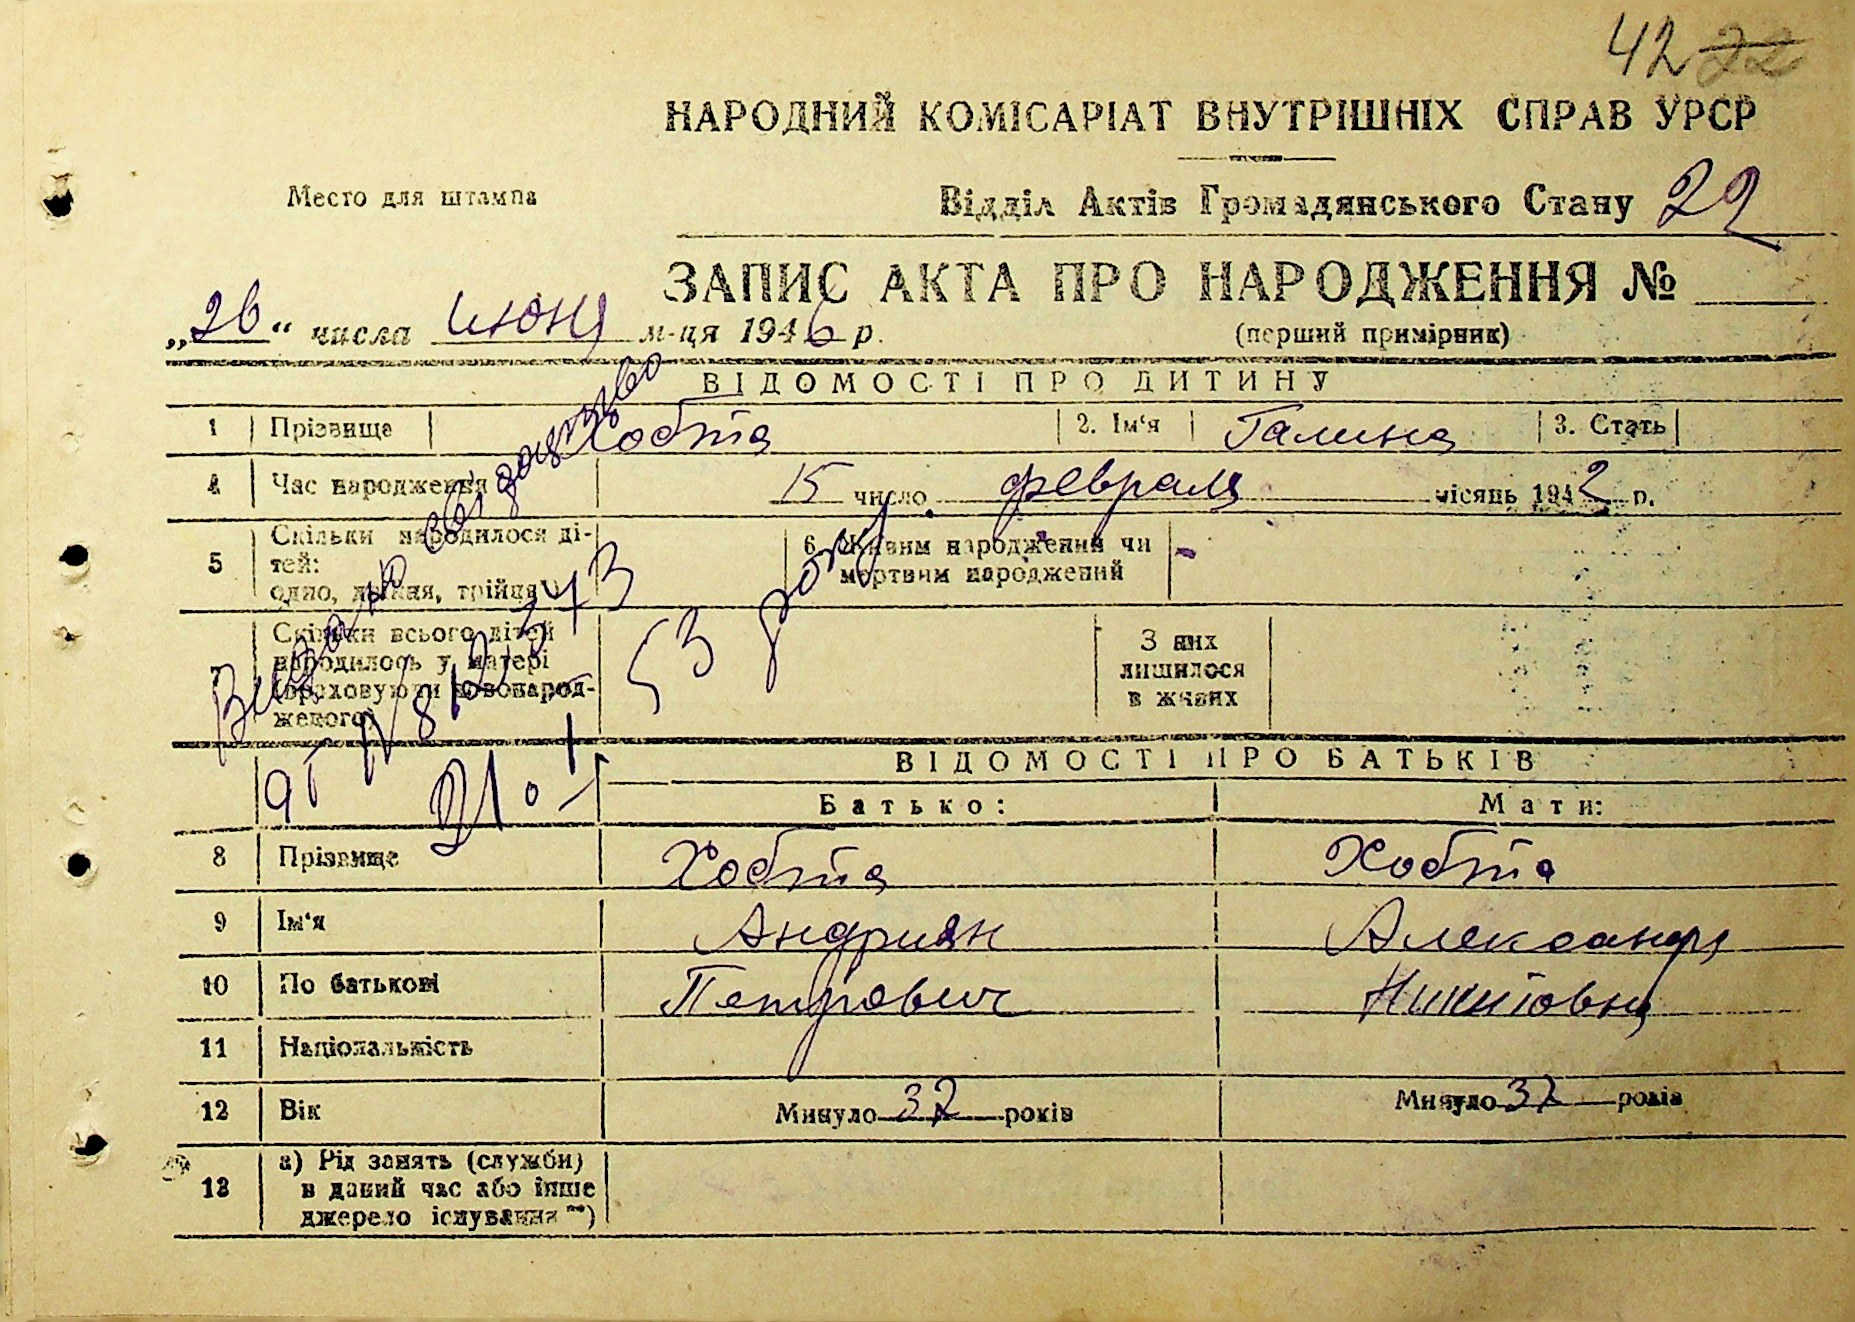 42 22
НАРОДНИЙ КОМІСАРІАТ ВНУТРІШНІХ СПРАВ УРСР
Место для штампа
Відділ Актів Громадянського Стану 22
ЗАПИС АКТА ПРО НАРОДЖЕННЯ №
„26“ числа июня м-ця 1946 р.
(перший примірник)
ВІДОМОСТІ ПРО ДИТИНУ
1 Прізвище Хобта 2. Ім‘я Галина 3. Стать
4 Час народження 15 число февраля місяць 1942 р.
5 Скільки народилося ді-
тей:
одно, двійня, трійня
6. Живим народжений чи
мертвим народжений -
7 Скільки всього дітей
народилось у матері
(враховуючи новонарод-
женого)
З них
лишилося
в живих
Видано свідоцтво
53 року
ВІДОМОСТІ ПРО БАТЬКІВ
Батько: Мати:
8 Прізвище Хобта Хобта
9 Ім‘я Андриян Александра
10 По батькові Петрович Никитовна
11 Національність
12 Вік Минуло 37 років Минуло 37 років
13 а) Рід занять (служби)
в даний час або інше
джерело існування **)